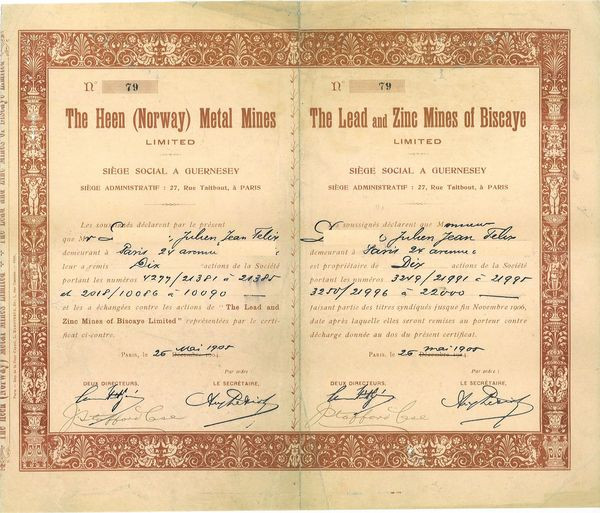 Nº 79
The Heen (Norway) Metal Mines
LIMITED
SIÈGE SOCIAL A GUERNESEY
SIÈGE ADMINISTRATIF : 27, Rue Taitbout, à PARIS
Les soussignés déclarent par le présent
que Mr Julien Jean Felix
demeurant à Paris 24 avenue
leur a remis Dix actions de la Société
portant les numéros 4277/21381 à 21385
et 2018/10086 à 10090
et les a échangées contre les actions de "The Lead and
Zinc Mines of Biscaye Limited" représentées par le certi-
ficat ci-contre.
PARIS, le 26 mai 1905
Par ordre :
DEUX DIRECTEURS, LE SECRÉTAIRE,
J Stafford Case
Nº 79
The Lead and Zinc Mines of Biscaye
LIMITED
SIÈGE SOCIAL A GUERNESEY
SIÈGE ADMINISTRATIF : 27, Rue Taitbout, à PARIS
Les soussignés déclarent que Monsieur
Julien Jean Felix
demeurant à Paris 24 avenue
est propriétaire de Dix actions de la Société
portant les numéros 3249/21991 à 21995
3250/21996 à 22000
faisant partie des titres syndiqués jusque fin Novembre 1906,
date après laquelle elles seront remises au porteur contre
décharge donnée au dos du présent certificat.
PARIS, le 26 mai 1905
Par ordre :
DEUX DIRECTEURS, LE SECRÉTAIRE,
J Stafford Case
The Heen (Norway) Metal Mines Limited The Lead and Zinc Mines of Biscaye Limited